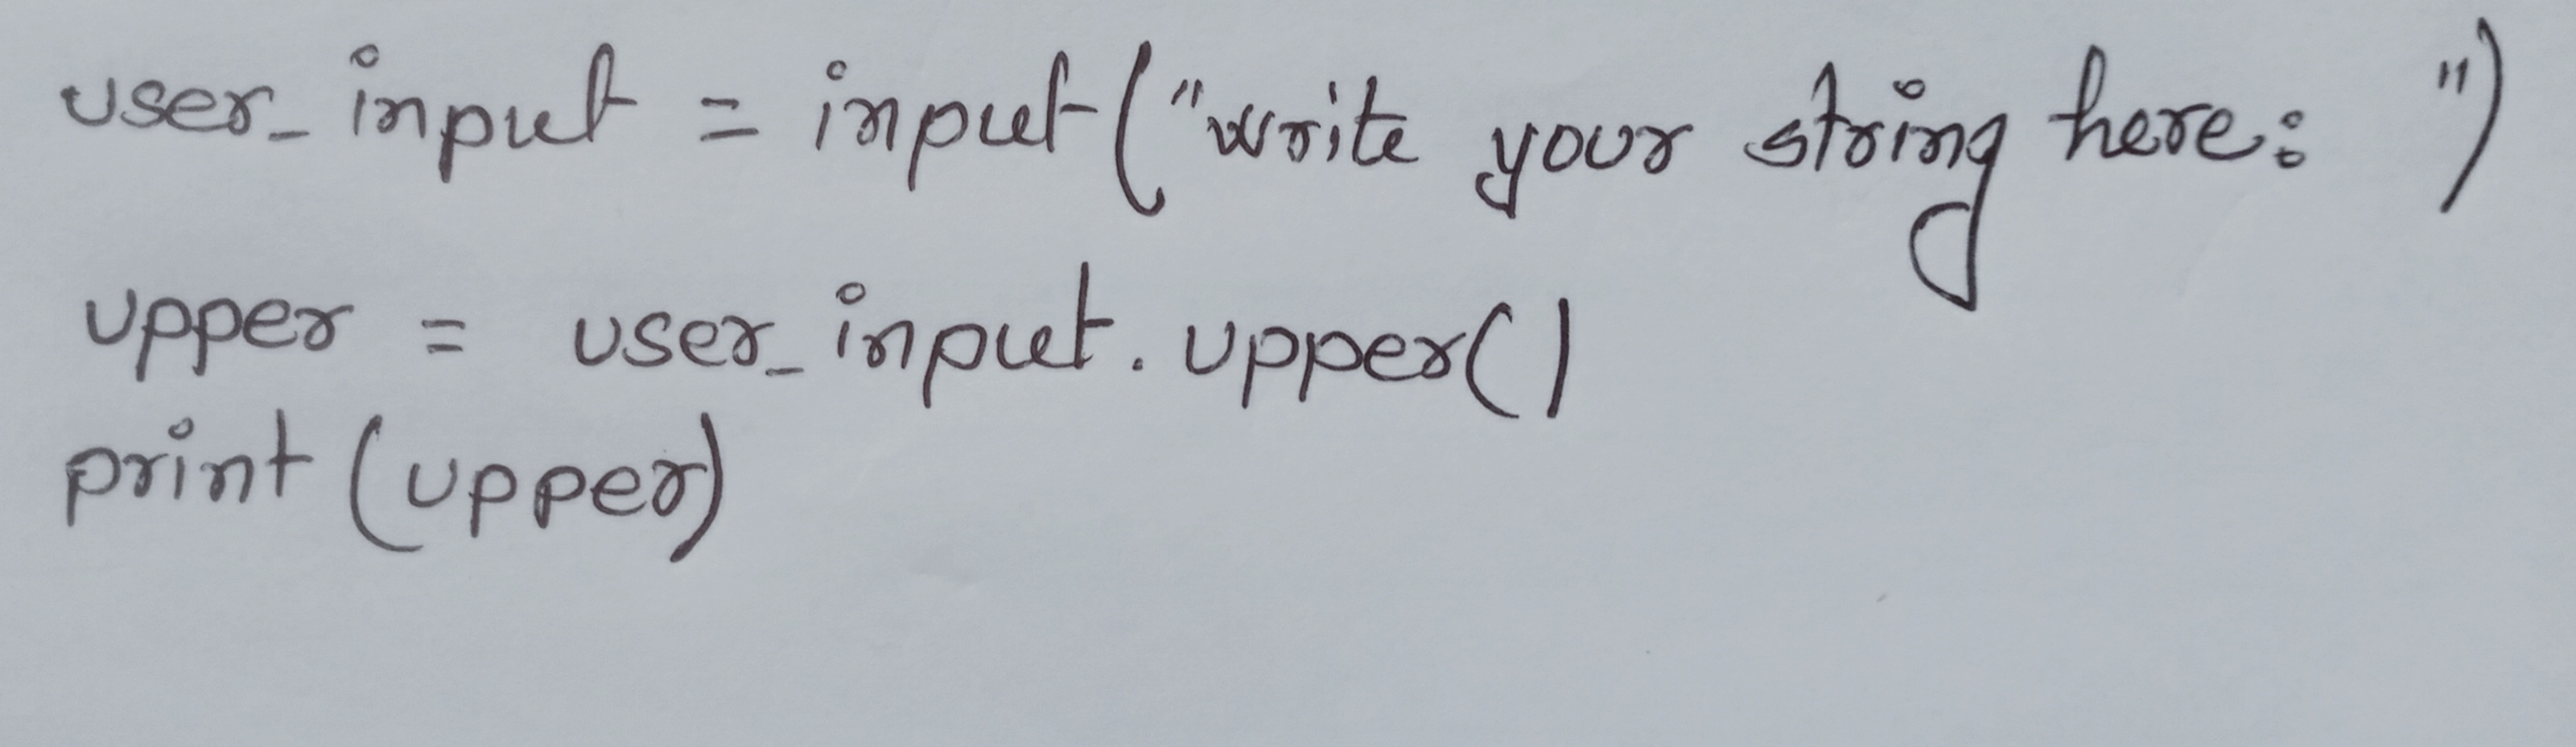 user_input = input("write your string here: ")
upper = user_input.upper()
print(upper)